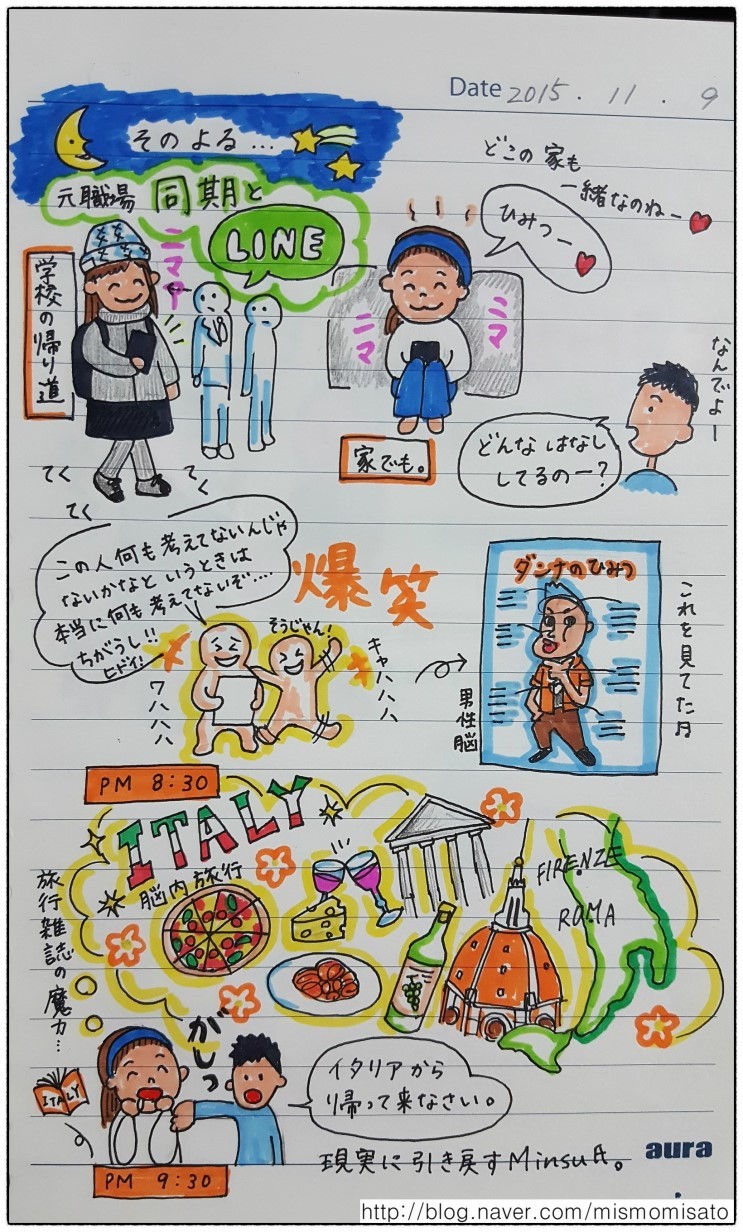 Date 2015.11.9
そのよる…
元職場 同期と
LINE
ニマァ
学校の帰り道
てく
てく
てく
どこの家も
一緒なのねー
ひみつー
ニマ
ニマ
家でも。
なんでよー
どんなはなし
してるのー?
この人何も考えてないんじゃ
ないかなと いうときは
本当に何も考えてないぞ….
ちがうし!!
ヒドイ!
爆笑
そうじゃん!
ワハハハ
キャハハハ
ダンナのひみつ
男性脳
これを見てた
PM 8:30
ITALY
脳内旅行
FIRENZE
ROMA
旅行雑誌の魔力…
ITALY
がしっ
イタリアから
帰って来なさい。
PM 9:30
現実に引き戻すMinsu
aura
http://blog.naver.com/mismomisato